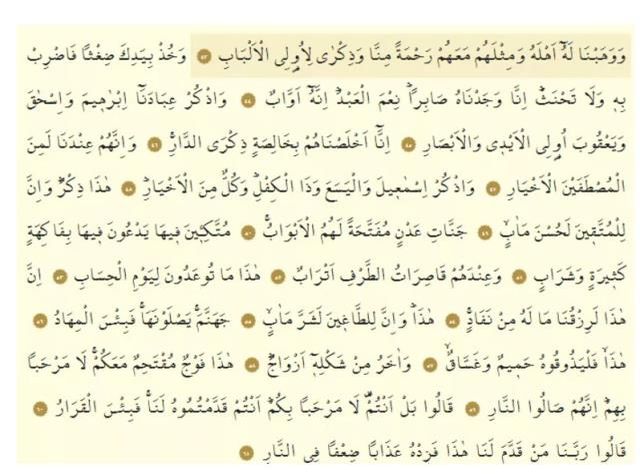 وَوَهَبْنَا لَهُٓ اَهْلَهُ وَمِثْلَهُمْ مَعَهُمْ رَحْمَةً مِنَّا وَذِكْرٰى لِاُو۬لِي الْاَلْبَابِ ﴿٤٣﴾ وَخُذْ بِيَدِكَ ضِغْثًا فَاضْرِبْ
بِهِ وَلَا تَحْنَثْۜ اِنَّا وَجَدْنَاهُ صَابِرًاۜ نِعْمَ الْعَبْدُۜ اِنَّهُٓ اَوَّابٌ ﴿٤٤﴾ وَاذْكُرْ عِبَادَنَٓا اِبْرٰه۪يمَ وَاِسْحٰقَ
وَيَعْقُوبَ اُو۬لِي الْاَيْد۪ي وَالْاَبْصَارِ ﴿٤٥﴾ اِنَّٓا اَخْلَصْنَاهُمْ بِخَالِصَةٍ ذِكْرَى الدَّارِۚ ﴿٤٦﴾ وَاِنَّهُمْ عِنْدَنَا لَمِنَ
الْمُصْطَفَيْنَ الْاَخْيَارِ ﴿٤٧﴾ وَاذْكُرْ اِسْمٰع۪يلَ وَالْيَسَعَ وَذَا الْكِفْلِۜ وَكُلٌّ مِنَ الْاَخْيَارِۜ ﴿٤٨﴾ هٰذَا ذِكْرٌۜ وَاِنَّ
لِلْمُتَّق۪ينَ لَحُسْنَ مَاٰبٍۙ ﴿٤٩﴾ جَنَّاتِ عَدْنٍ مُفَتَّحَةً لَهُمُ الْاَبْوَابُۚ ﴿٥٠﴾ مُتَّكِـ۪ٔينَ ف۪يهَا يَدْعُونَ ف۪يهَا بِفَاكِهَةٍ
كَث۪يرَةٍ وَشَرَابٍ ﴿٥١﴾ وَعِنْدَهُمْ قَاصِرَاتُ الطَّرْفِ اَتْرَابٌ ﴿٥٢﴾ هٰذَا مَا تُوعَدُونَ لِيَوْمِ الْحِسَابِ ﴿٥٣﴾ اِنَّ
هٰذَا لَرِزْقُنَا مَا لَهُ مِنْ نَفَادٍۚ ﴿٥٤﴾ هٰذَاۜ وَاِنَّ لِلطَّاغ۪ينَ لَشَرَّ مَاٰبٍۙ ﴿٥٥﴾ جَهَنَّمَۚ يَصْلَوْنَهَاۚ فَبِئْسَ الْمِهَادُ ﴿٥٦﴾
هٰذَاۙ فَلْيَذُوقُوهُ حَم۪يمٌ وَغَسَّاقٌۙ ﴿٥٧﴾ وَاٰخَرُ مِنْ شَكْلِه۪ٓ اَزْوَاجٌۜ ﴿٥٨﴾ هٰذَا فَوْجٌ مُقْتَحِمٌ مَعَكُمْۚ لَا مَرْحَبًا
بِهِمْۜ اِنَّهُمْ صَالُوا النَّارِ ﴿٥٩﴾ قَالُوا بَلْ اَنْتُمْ۠ لَا مَرْحَبًا بِكُمْۜ اَنْتُمْ قَدَّمْتُمُوهُ لَنَاۚ فَبِئْسَ الْقَرَارُ ﴿٦٠﴾
قَالُوا رَبَّنَا مَنْ قَدَّمَ لَنَا هٰذَا فَزِدْهُ عَذَابًا ضِعْفًا فِي النَّارِ ﴿٦١﴾